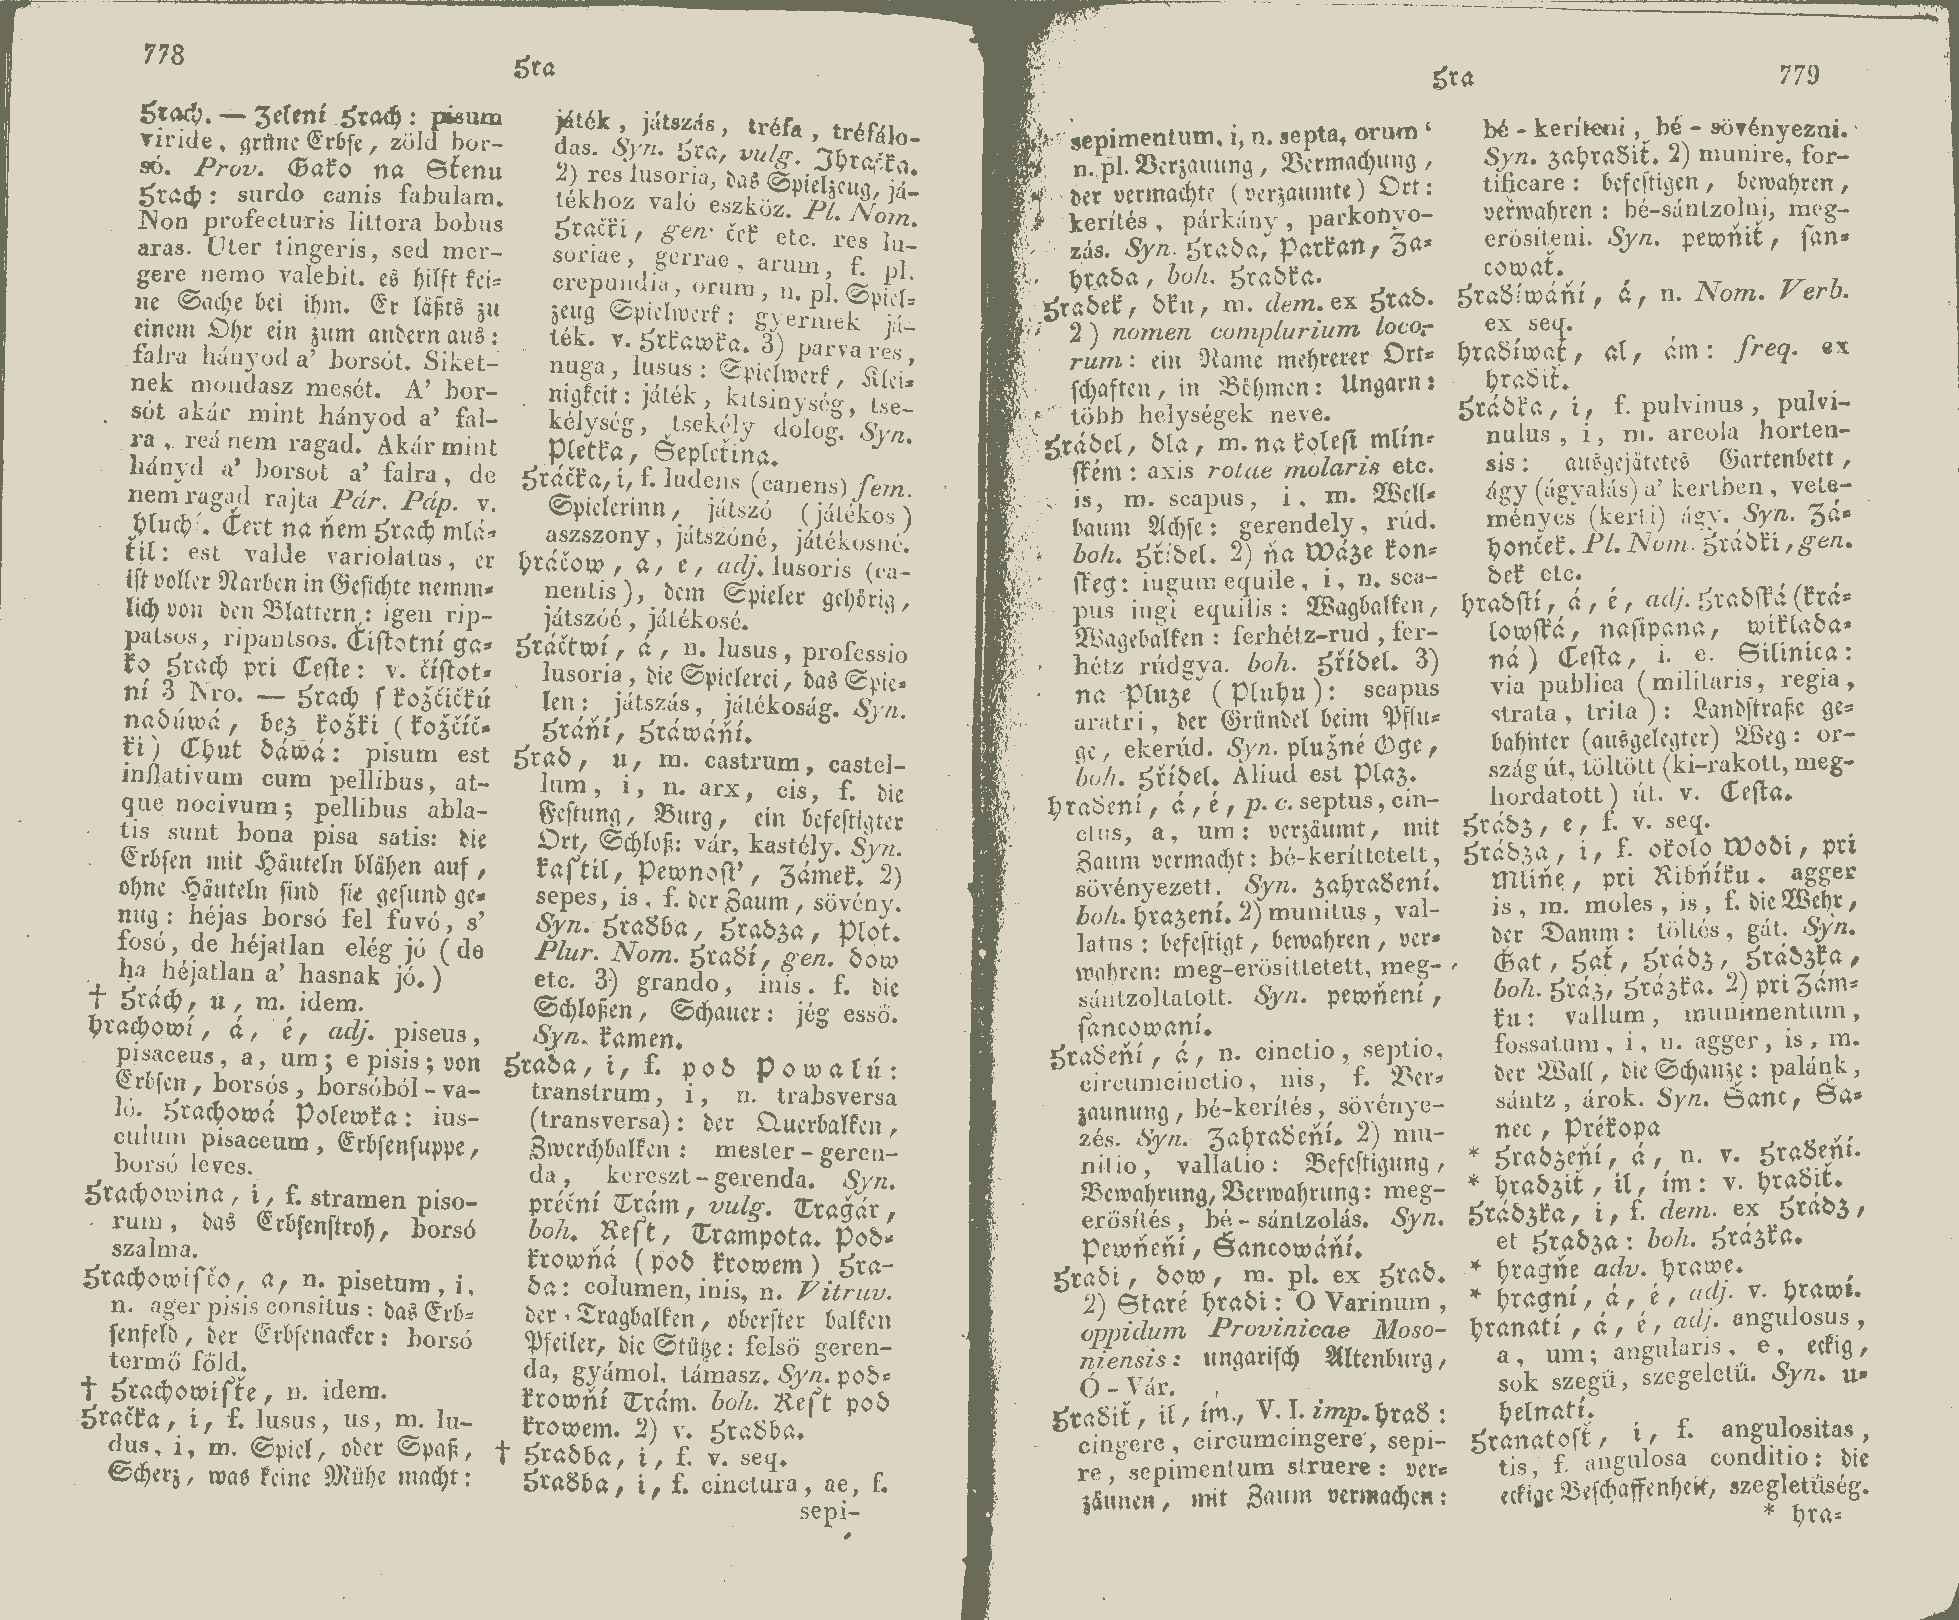 778
Hra
Hrach. — Zelení Hrach: pisum
viride, grüne Erbse, zöld bor-
só. Prov. Gako na Sťenu
Hrach: surdo canis fabulam.
Non profecturis littora bobus
aras. Uter tingeris, sed mer-
gere nemo valebit. es hilft kei-
ne Sache bei ihm. Er läßts zu
einem Ohr ein zum andern aus:
falra hányod a' borsót. Siket-
nek mondasz mesét. A' bor-
sót akár mint hányod a' fal-
ra, reá nem ragad. Akár mint
hányd a' borsot a' falra, de
nem ragad rajta Pár. Páp. v.
hluchí. Čert na ňem Hrach mlá-
ťil: est valde variolatus, er
ist voller Narben in Gesichte nemm-
lich von den Blattern: igen rip-
patsos, ripantsos. Čistotní ga-
ko Hrach pri Ceste: v. čístot-
ní 3 Nro. — Hrach s kožčičkú
nadúwá, bez kožki (kožčič-
ki) Chut dáwá: pisum est
inflativum cum pellibus, at-
que nocivum; pellibus abla-
tis sunt bona pisa satis: die
Erbsen mit Häuteln blähen auf,
ohne Häuteln sind sie gesund ge-
nug: héjas borsó fel fuvó, s'
fosó, de héjatlan elég jó (de
ha héjatlan a' hasnak jó.)
† Hrách, u, m. idem.
hrachowí, á, é, adj. piseus,
pisaceus, a, um; e pisis; von
Erbsen, borsós, borsóból-va-
ló. Hrachowá Polewka: ius-
culum pisaceum, Erbsensuppe,
borsó leves.
Hrachowina, i, f. stramen piso-
rum, das Erbsenstroh, borsó
szalma.
Hrachowisčo, a, n. pisetum, i,
n. ager pisis consitus: das Erb-
senfeld, der Erbsenacker: borsó
termő föld.
† Hrachowisťe, n. idem.
Hračka, i, f. lusus, us, m. lu-
dus, i, m. Spiel, oder Spaß,
Scherz, was keine Mühe macht:
játék, játszás, tréfa, tréfálo-
das. Syn. Hra, vulg. Ihračka.
2) res lusoria, das Spielzeug, já-
tékhoz való eszköz. Pl. Nom.
Hrački, gen. ček etc. res lu-
soriae, gerrae, arum, f. pl.
crepundia, orum, n. pl. Spiel-
zeug Spielwerk: gyermek já-
ték. v. Hrkawka. 3) parva res,
nuga, lusus: Spielwerk, Klei-
nigkeit: játék, kitsinység, tse-
kélység, tsekély dolog. Syn.
Pletka, Šepleťina.
Hráčka, i, f. ludens (canens) fem.
Spielerinn, játszó (játékos)
aszszony, játszóné, játékosné.
hráčow, a, e, adj. lusoris (ca-
nentis), dem Spieler gehörig,
játszóé, játékosé.
Hráčtwí, á, n. lusus, professio
lusoria, die Spielerei, das Spie-
len: játszás, játékoság. Syn.
Hráňí, Hráwáňí.
Hrad, u, m. castrum, castel-
lum, i, n. arx, cis, f. die
Festung, Burg, ein befestigter
Ort, Schloß: vár, kastély. Syn.
kastil, Pewnosť, Zámek. 2)
sepes, is, f. der Zaum, sövény.
Syn. Hraďba, Hradza, Plot.
Plur. Nom. Hraďi, gen. dow
etc. 3) grando, inis. f. die
Schloßen, Schauer: jég essö.
Syn. kamen.
Hrada, i, f. pod Powalú:
transtrum, i, n. trabsversa
(transversa): der Querbalken,
Zwerchbalken: mester-geren-
da, kereszt-gerenda. Syn.
préční Trám, vulg. Tragár,
boh. Rest, Trampota. Pod-
krowňá (pod krowem) Hra-
da: columen, inis, n. Vitruv.
der Tragbalken, oberster balken
Pfeiler, die Stütze: felsö geren-
da, gyámol, támasz. Syn. pod-
krowňí Trám. boh. Rest pod
krowem. 2) v. Hraďba.
† Hradba, i, f. v. seq.
Hraďba, i, f. cinctura, ae, f.
sepi-
Hra
779
sepimentum, i, n. septa, orum
n. pl. Verzauung, Vermachung,
der vermachte (verzaumte) Ort:
kerítés, párkány, parkonyo-
zás. Syn. Hrada, Parkan, Za-
hrada, boh. Hradka.
Hradek, dku, m. dem. ex Hrad.
2) nomen complurium loco-
rum: ein Name mehrerer Ort-
schaften, in Böhmen: Ungarn:
több helységek neve.
Hrádel, dla, m. na kolesi mlín-
ském: axis rotae molaris etc.
is, m. scapus, i, m. Well-
baum Achse: gerendely, rúd.
boh. Hřídel. 2) ňa Wáze kon-
skeg: iugum equile, i, n. sca-
pus iugi equilis: Wagbalken,
Wagebalken: ferhétz-rud, fer-
hétz rúdgya. boh. Hřídel. 3)
na Pluze (Pluhu): scapus
aratri, der Gründel beim Pflu-
ge, ekerúd. Syn. plužné Oge,
boh. Hřídel. Aliud est Plaz.
hraďení, á, é, p. c. septus, cin-
ctus, a, um: verzäumt, mit
Zaum vermacht: bé-keríttetett,
sövényezett. Syn. zahraďení.
boh. hrazení. 2) munitus, val-
latus: befestigt, bewahren, ver-
wahren: meg-erösittetett, meg-
sántzoltatott. Syn. pewňení,
sancowaní.
Hraďeňí, á, n. cinctio, septio,
circumcinctio, nis, f. Ver-
zaunung, bé-kerítés, sövénye-
zés. Syn. Zahraďeňí. 2) mu-
nitio, vallatio: Befestigung,
Bewahrung, Verwahrung: meg-
erösítés, bé-sántzolás. Syn.
Pewňeňí, Šancowáňí.
Hraďi, dow, m. pl. ex Hrad.
2) Staré hradi: O Varinum,
oppidum Provinicae Moso-
niensis: ungarisch Altenburg,
Ó-Vár.
Hraďiť, il, ím, V. I. imp. hraď:
cingere, circumcingere, sepi-
re, sepimentum struere: ver-
zäunen, mit Zaum vermachen:
bé-keríteni, bé-sövényezni.
Syn. zahraďiť. 2) munire, for-
tificare: befestigen, bewahren,
verwahren: bé-sántzolni, meg-
erösíteni. Syn. pewňiť, san-
cowať.
Hraďíwáňí, á, n. Nom. Verb.
ex seq.
hraďíwať, al, ám: freq. ex
hraďiť.
Hrádka, i, f. pulvinus, pulvi-
nulus, i, m. areola horten-
sis: ausgejätetes Gartenbett,
ágy (ágyalás) a' kertben, vete-
ményes (kerti) ágy. Syn. Zá-
honček. Pl. Nom. Hrádki, gen.
dek etc.
hradskí, á, é, adj. Hradská (krá-
lowská, nasipana, wiklada-
ná) Cesta, i. e. Silinica:
via publica (militaris, regia,
strata, trita): Landstraße ge-
bahnter (ausgelegter) Weg: or-
szág út, töltött (ki-rakott, meg-
hordatott) út. v. Cesta.
Hrádz, e, f. v. seq.
Hrádza, i, f. okolo Wodi, pri
Mliňe, pri Ribňíku. agger
is, m. moles, is, f. die Wehr,
der Damm: töltés, gát. Syn.
Gat, Hať, Hrádz, Hrádzka,
boh. Hráz, Hrázka. 2) pri Zám-
ku: vallum, munimentum,
fossatum, i, n. agger, is, m.
der Wall, die Schanze: palánk,
sántz, árok. Syn. Šanc, Ša-
nec, Prékopa
* Hradzeňí, á, n. v. Hraďeňí.
* hradziť, il, ím: v. hraďiť.
Hrádzka, i, f. dem. ex Hrádz,
et Hradza: boh. Hrázka.
* hragňe adv. hrawe.
* hragní, á, é, adj. v. hrawí.
hranatí, á, é, adj. angulosus,
a, um; angularis, e, eckig,
sok szegü, szegeletü. Syn. u-
helnatí.
Hranatosť, i, f. angulositas,
tis, f. angulosa conditio: die
eckige Beschaffenheit, szegletüség.
* hra-